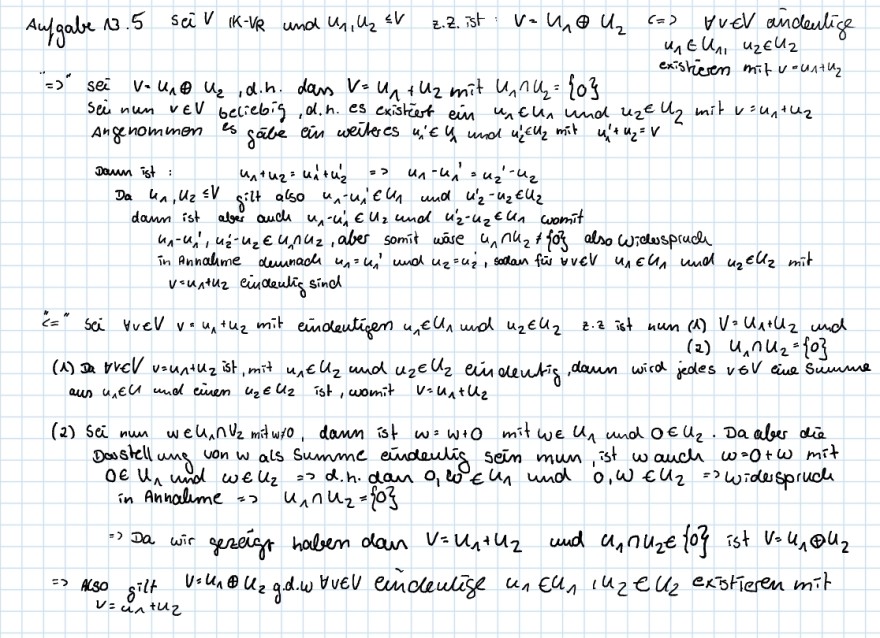 Aufgabe 13.5 Sei V IK-VR und U₁,U₂ ≤V z.z. ist: V= U₁ ⊕ U₂ <=> ∀v∈V eindeutige
u₁∈U₁, u₂∈U₂
existieren mit v=u₁+u₂
"=>" sei V=U₁⊕U₂, d.h. dass V=U₁+U₂ mit U₁∩U₂={0}
Sei nun v∈V beliebig, d.h. es existiert ein u₁∈U₁ und u₂∈U₂ mit v=u₁+u₂
Angenommen es gäbe ein weiteres u₁'∈U₁ und u₂'∈U₂ mit u₁'+u₂'=v
Dann ist: u₁+u₂=u₁'+u₂' => u₁-u₁'=u₂'-u₂
Da U₁,U₂≤V gilt also u₁-u₁'∈U₁ und u₂'-u₂∈U₂
dann ist aber auch u₁-u₁'∈U₂ und u₂'-u₂∈U₁ womit
u₁-u₁', u₂'-u₂∈U₁∩U₂, aber somit wäre U₁∩U₂≠{0} also Widerspruch
in Annahme demnach u₁=u₁' und u₂=u₂', sodass für ∀v∈V u₁∈U₁ und u₂∈U₂ mit
v=u₁+u₂ eindeutig sind
"<=" Sei ∀v∈V v=u₁+u₂ mit eindeutigen u₁∈U₁ und u₂∈U₂ z.z ist nun (1) V=U₁+U₂ und
(2) U₁∩U₂={0}
(1) Da ∀v∈V v=u₁+u₂ ist, mit u₁∈U₂ und u₂∈U₂ eindeutig, dann wird jedes v∈V eine Summe
aus u₁∈U und einen u₂∈U₂ ist, womit V=U₁+U₂
(2) Sei nun w∈U₁∩U₂ mit w≠0, dann ist w=w+0 mit w∈U₁ und 0∈U₂. Da aber die
Darstellung von w als Summe eindeutig sein muss, ist w auch w=0+w mit
0∈U₁ und w∈U₂ => d.h. dass 0,w∈U₁ und 0,w∈U₂ => Widerspruch
in Annahme => U₁∩U₂={0}
=> Da wir gezeigt haben dass V=U₁+U₂ und U₁∩U₂∈{0} ist V=U₁⊕U₂
=> Also gilt V=U₁⊕U₂ g.d.w ∀v∈V eindeutige u₁∈U₁, u₂∈U₂ existieren mit
v=u₁+u₂